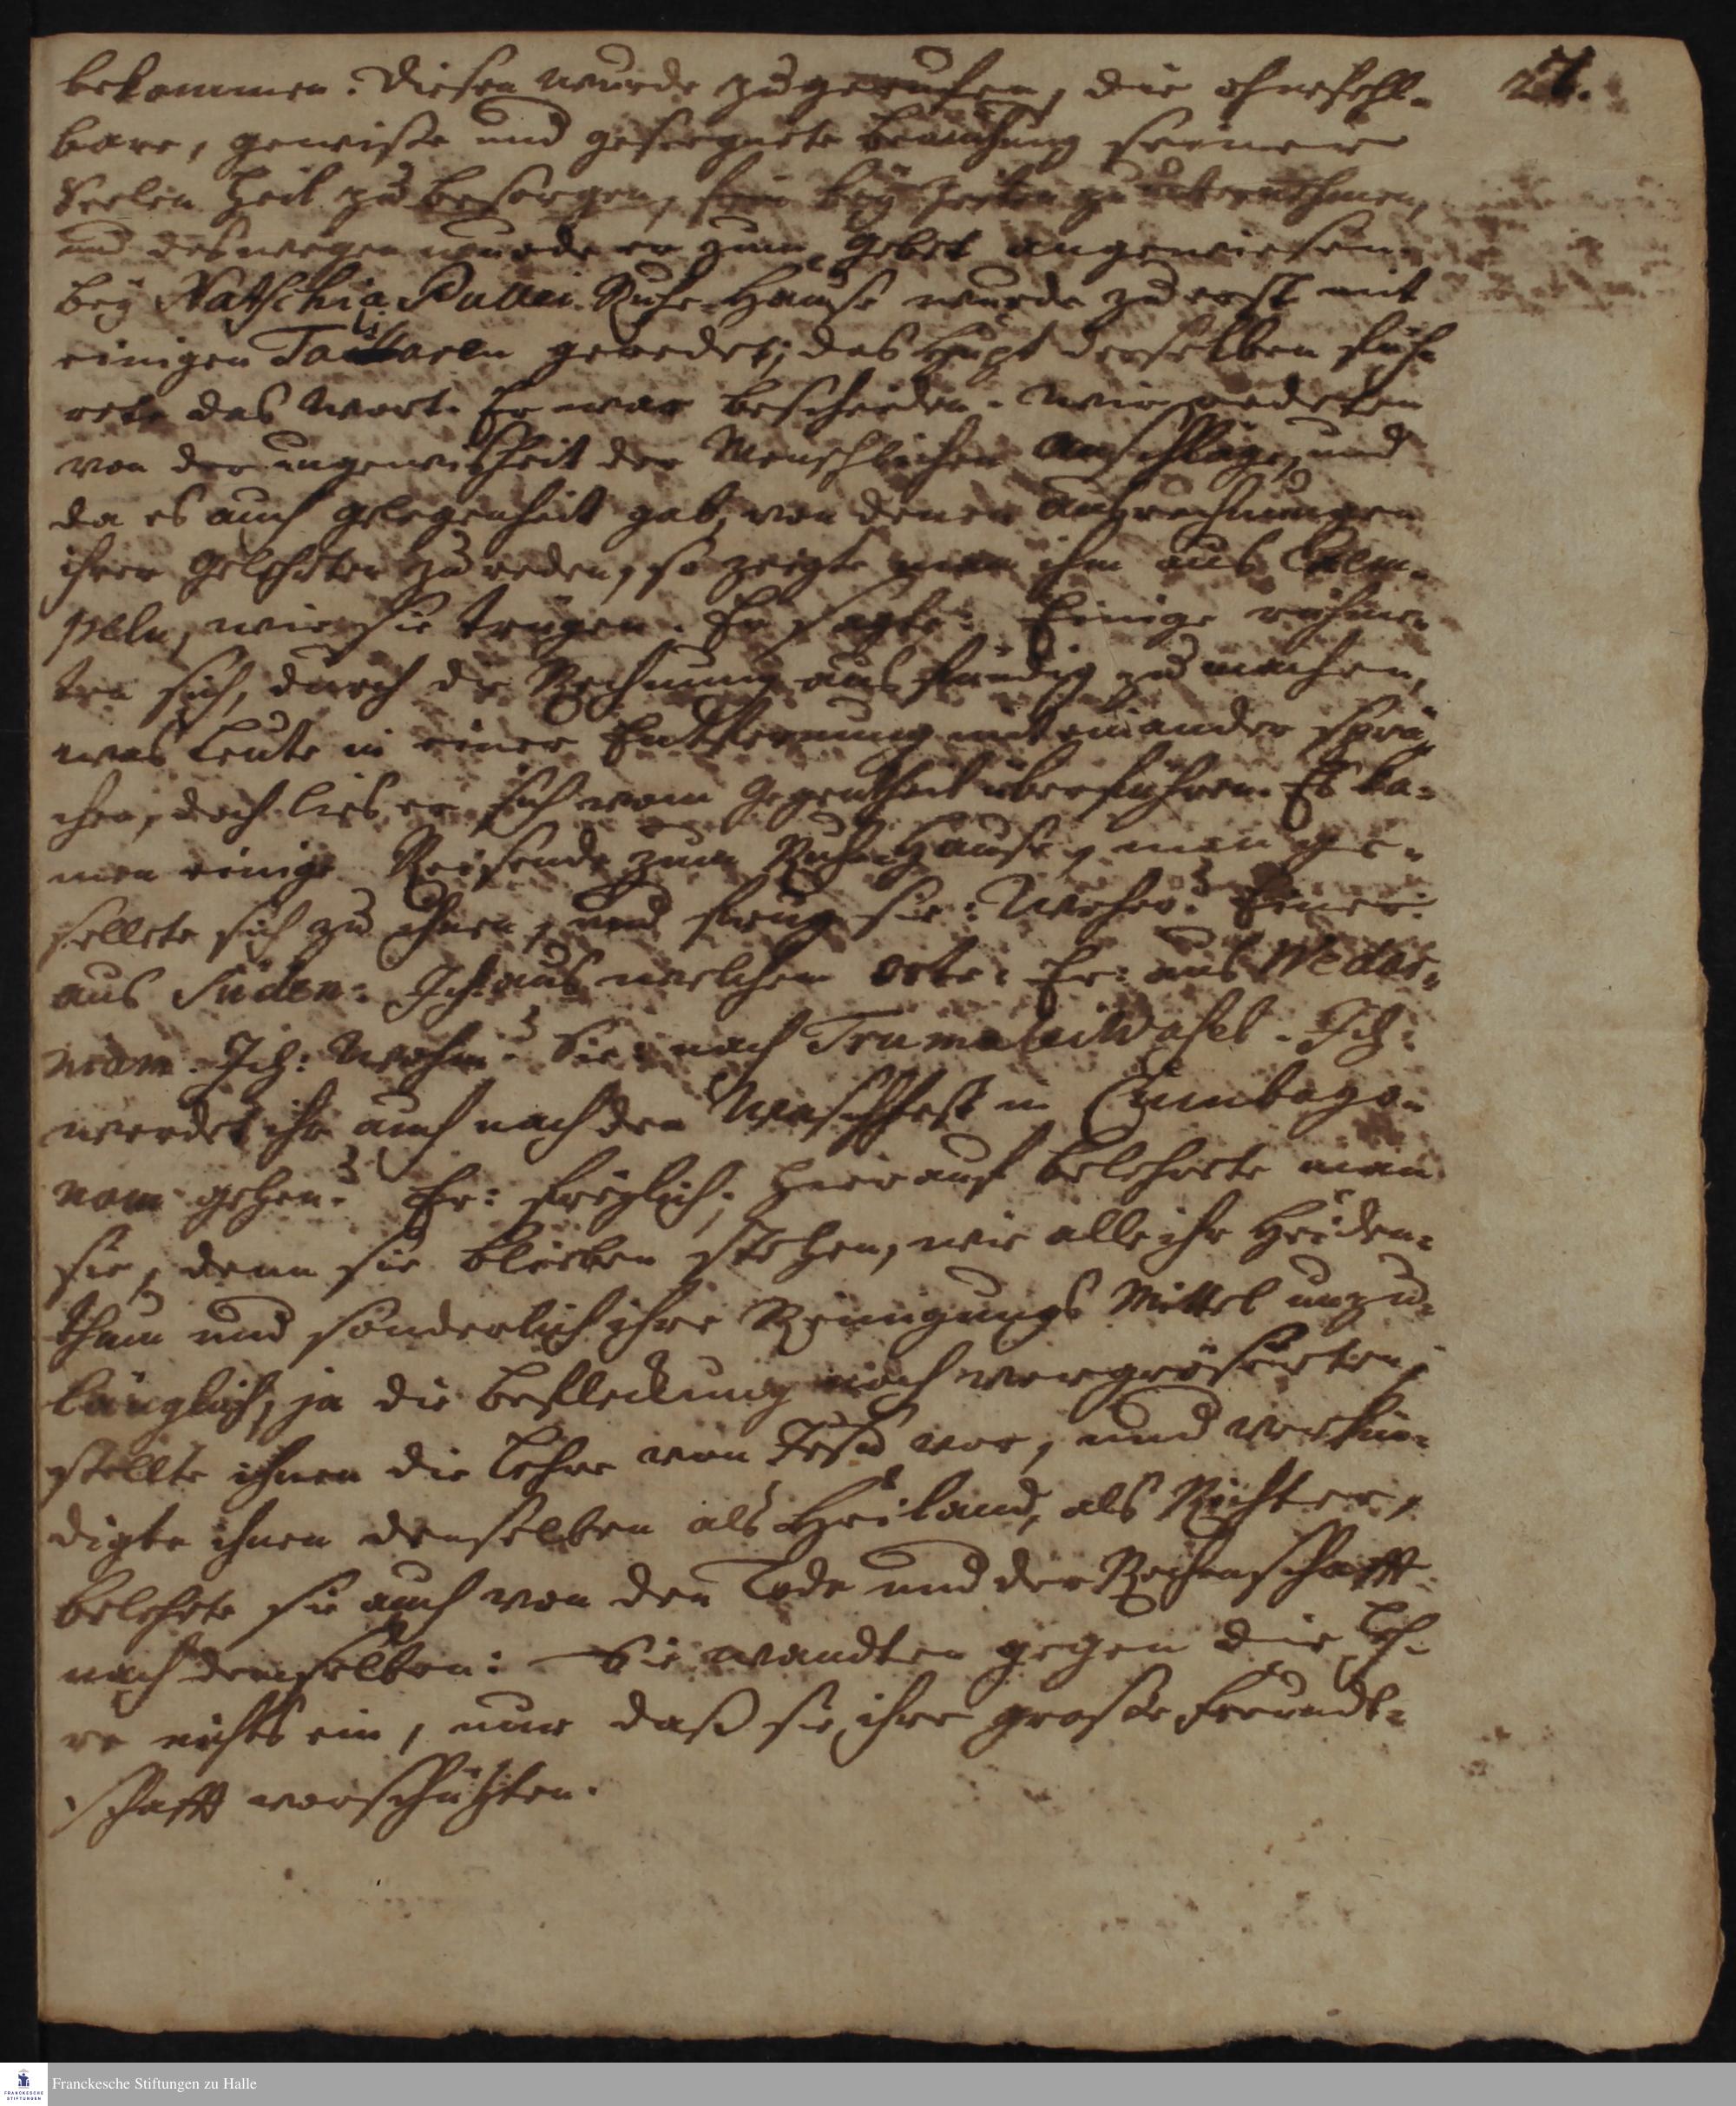 27.
bekommen. Diesen wurde zugerufen, die ohnfehl-
bare, gewiße und gesegnete bemühung seiner
Seelen Heil zu besorgen, fein beÿ Zeiten zu unternehmen,
und deswegen wurde er zum Gebet angewiesen.
beÿ Natschia Pullei Ruhe-Hause wurde zu erst mit
einigen geredet; das Haupt derselben füh-
rete das Wort. Er war bescheiden. Wir redeten
von der ungewisheit der Menschlichen Anschläge, und
da es auch gelegenheit gab, von denen Ausrechnungen
ihrer Gelehrten zu reden, so zeigte man ihm aus Exem-
peln, wie sie trügen. Er sagte: Einige rühme-
ten sich, durch die Rechnung ausfündig zu machen,
was Leute in einer Entfernung mit einander sprä-
chen, doch lies er sich vom Gegentheil überführen. Es ka-
men einige Reisende zum Ruhe-Hause, man ge-
sellete sich zu ihnen, und frug sie: Woher? Einer:
aus Süden. Ich: aus welchem Orte? Er: aus Wedar-
niam. Ich: Wohin? Sie: nach TrumaleiWasel. Ich:
werdet ihr auch nach dem Waschfest in Cumbago-
nam gehen? Er: freylich; hierauf belehrete man
sie, denn sie blieben stehen, wie alle ihr Heiden-
thum und sonderlich ihre Reinigungs Mittel unzu-
länglich, ja die Befleckung noch vergrößerten,
stellte ihnen die Lehre von Jesu vor, und verkün-
digte ihnen denselben als Heiland, als Richter,
belehrte sie auch von dem Tode und der Rechenschafft
nach demselben: Sie wandten gegen die Leh-
re nichts ein, nur daß sie ihre große Freundt-
schafft vorschützten.
Franckesche Stiftungen zu Halle
FRANCKESCHE STIFTUNGEN